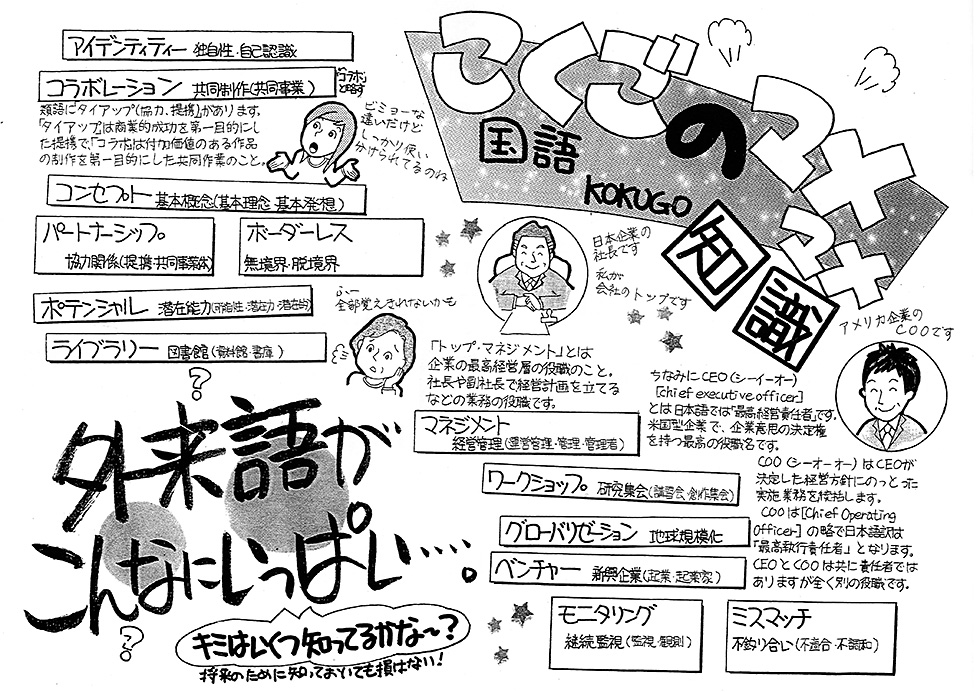 こくごのマメマメ
国語
KOKUGO
知識
アイデンティティー 独自性・自己認識
コラボレーション 共同制作(共同事業)
コラボと略す
類語にタイアップ(協力、提携)があります。
「タイアップ」は商業的成功を第一目的にし
た提携で、「コラボ」は付加価値のある作品
の制作を第一目的にした共同作業のこと。
ビミョーな
違いだけど
しっかり使い
分けられてるのね
コンセプト 基本概念(基本理念 基本発想)
パートナーシップ
協力関係(提携・共同事業体)
ボーダーレス
無境界・脱境界
ポテンシャル 潜在能力(可能性・潜在力・潜在的)
ふー
全部覚えきれないかも
ライブラリー 図書館(資料館・書庫)
日本企業の
社長です
私が
会社のトップです
「トップ・マネジメント」とは
企業の最高経営層の役職のこと。
社長や副社長で経営計画を立てる
などの業務の役職です。
マネジメント
経営管理(運営管理・管理・管理者)
アメリカ企業の
COOです
ちなみにCEO(シーイーオー)
[chief executive officer]
とは日本語では「最高経営責任者」です。
米国型企業で、企業意思の決定権
を持つ最高の役職名です。
COO(シーオーオー)はCEOが
決定した経営方針にのっとった
実施業務を統括します。
COOは[Chief Operating
Officer]の略で日本語訳は
「最高執行責任者」となります。
CEOとCOOは共に責任者では
ありますが全く別の役職です。
ワークショップ 研究集会(講習会・創作集会)
グローバリゼーション 地球規模化
ベンチャー 新興企業(起業・起業家)
モニタリング
継続監視(監視・観測)
ミスマッチ
不釣り合い(不適合・不調和)
?
外来語が
こんなにいっぱい‥‥。
?
キミはいくつ知ってるかな〜?
将来のために知っておいても損はない!